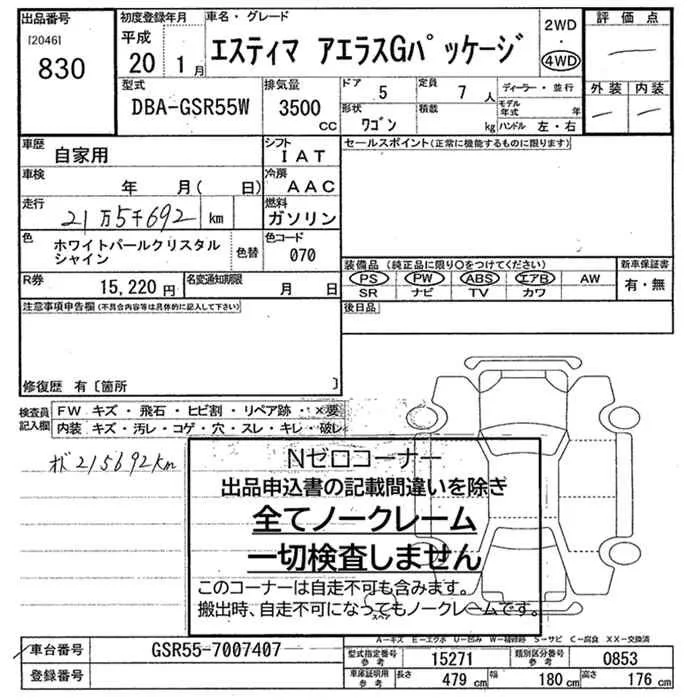 出品番号 初度登録年月 車名・グレード 2WD 評価点
[2046] 平成 ・
830 20 1月 エスティマ アエラスGパッケージ 4WD
型式 排気量 ドア 定員 ディーラー・並行 外装 内装
DBA-GSR55W 3500 CC 5 7人 モデル年式 年
形状 積載
ワゴン kg ハンドル 左・右
車歴 シフト セールスポイント(正常に機能するものに限ります)
自家用 IAT
車検 冷房
年 月( 日) AAC
走行 燃料
21万5千692 km ガソリン
色 色コード
ホワイトパールクリスタル 色替 070
シャイン
装備品(純正品に限り○をつけてください) 新車保証書
R券 名変通知期限 PS PW ABS エアB AW 有・無
15,220円 月 日 SR ナビ TV カワ
注意事項申告欄(不具合内容等は具体的に記入して下さい) 後日品
修復歴 有〔箇所 〕
検査員 FW キズ・飛石・ヒビ割・リペア跡・×要
記入欄 内装 キズ・汚レ・コゲ・穴・スレ・キレ・破レ
215692km
Nゼロコーナー
出品申込書の記載間違いを除き
全てノークレーム
一切検査しません
このコーナーは自走不可も含みます。
搬出時、自走不可になってもノークレームです。
スペア
A-キズ E-エクボ U-凹み W-補修跡 S-サビ C-腐食 XX-交換済
車台番号 GSR55-7007407 型式指定番号 参考 15271 類別区分番号 参考 0853
登録番号 車庫証明用 参考 長さ 479 cm 幅 180 cm 高さ 176 cm